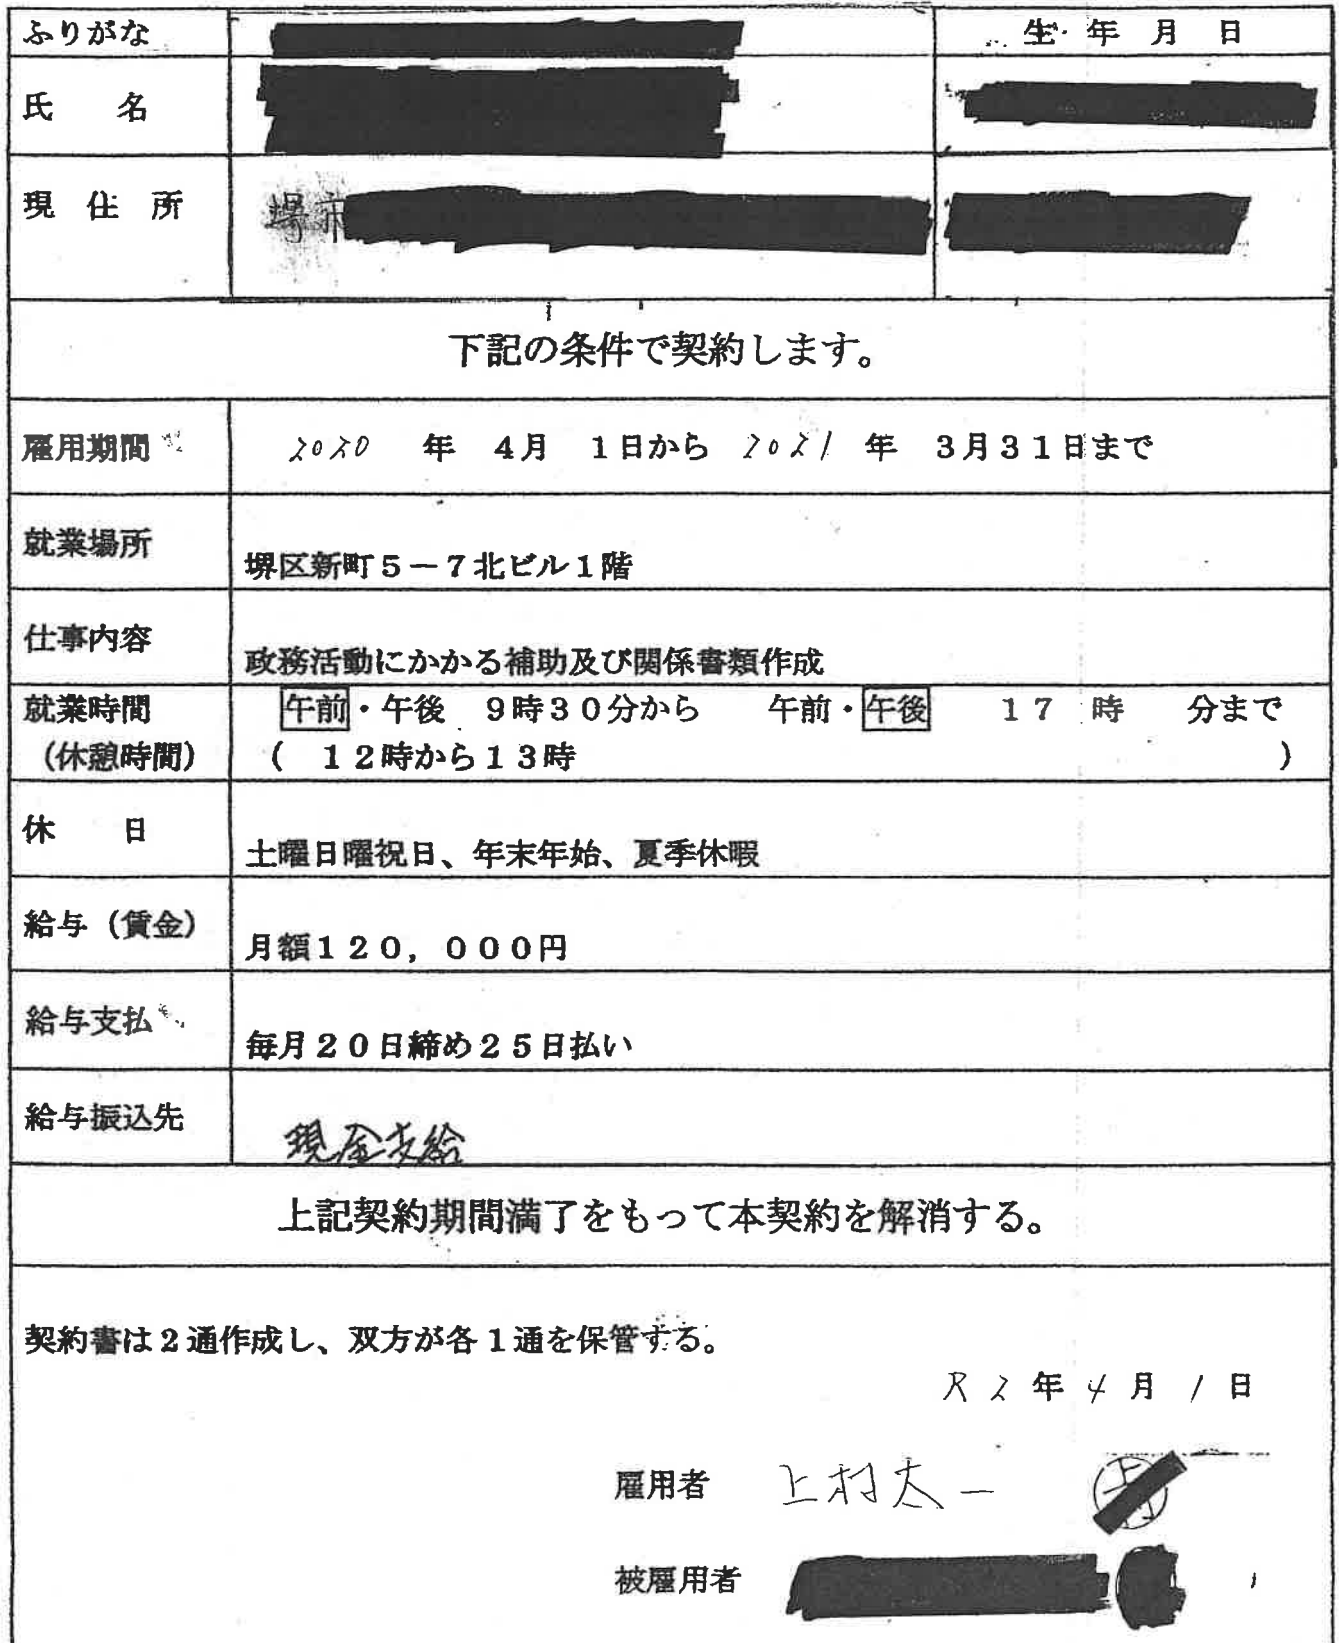 ふりがな
生年月日
氏 名
現 住 所
下記の条件で契約します。
雇用期間 2020 年 4月 1日から 2021 年 3月31日まで
就業場所
堺区新町5－7北ビル1階
仕事内容
政務活動にかかる補助及び関係書類作成
就業時間 午前・午後 9時30分から 午前・午後 17 時 分まで
（休憩時間） （ 12時から13時 ）
休 日
土曜日曜祝日、年末年始、夏季休暇
給与（賃金）
月額120，000円
給与支払
毎月20日締め25日払い
給与振込先
現金支給
上記契約期間満了をもって本契約を解消する。
契約書は2通作成し、双方が各1通を保管する。
R2年4月1日
雇用者 上村太一
被雇用者